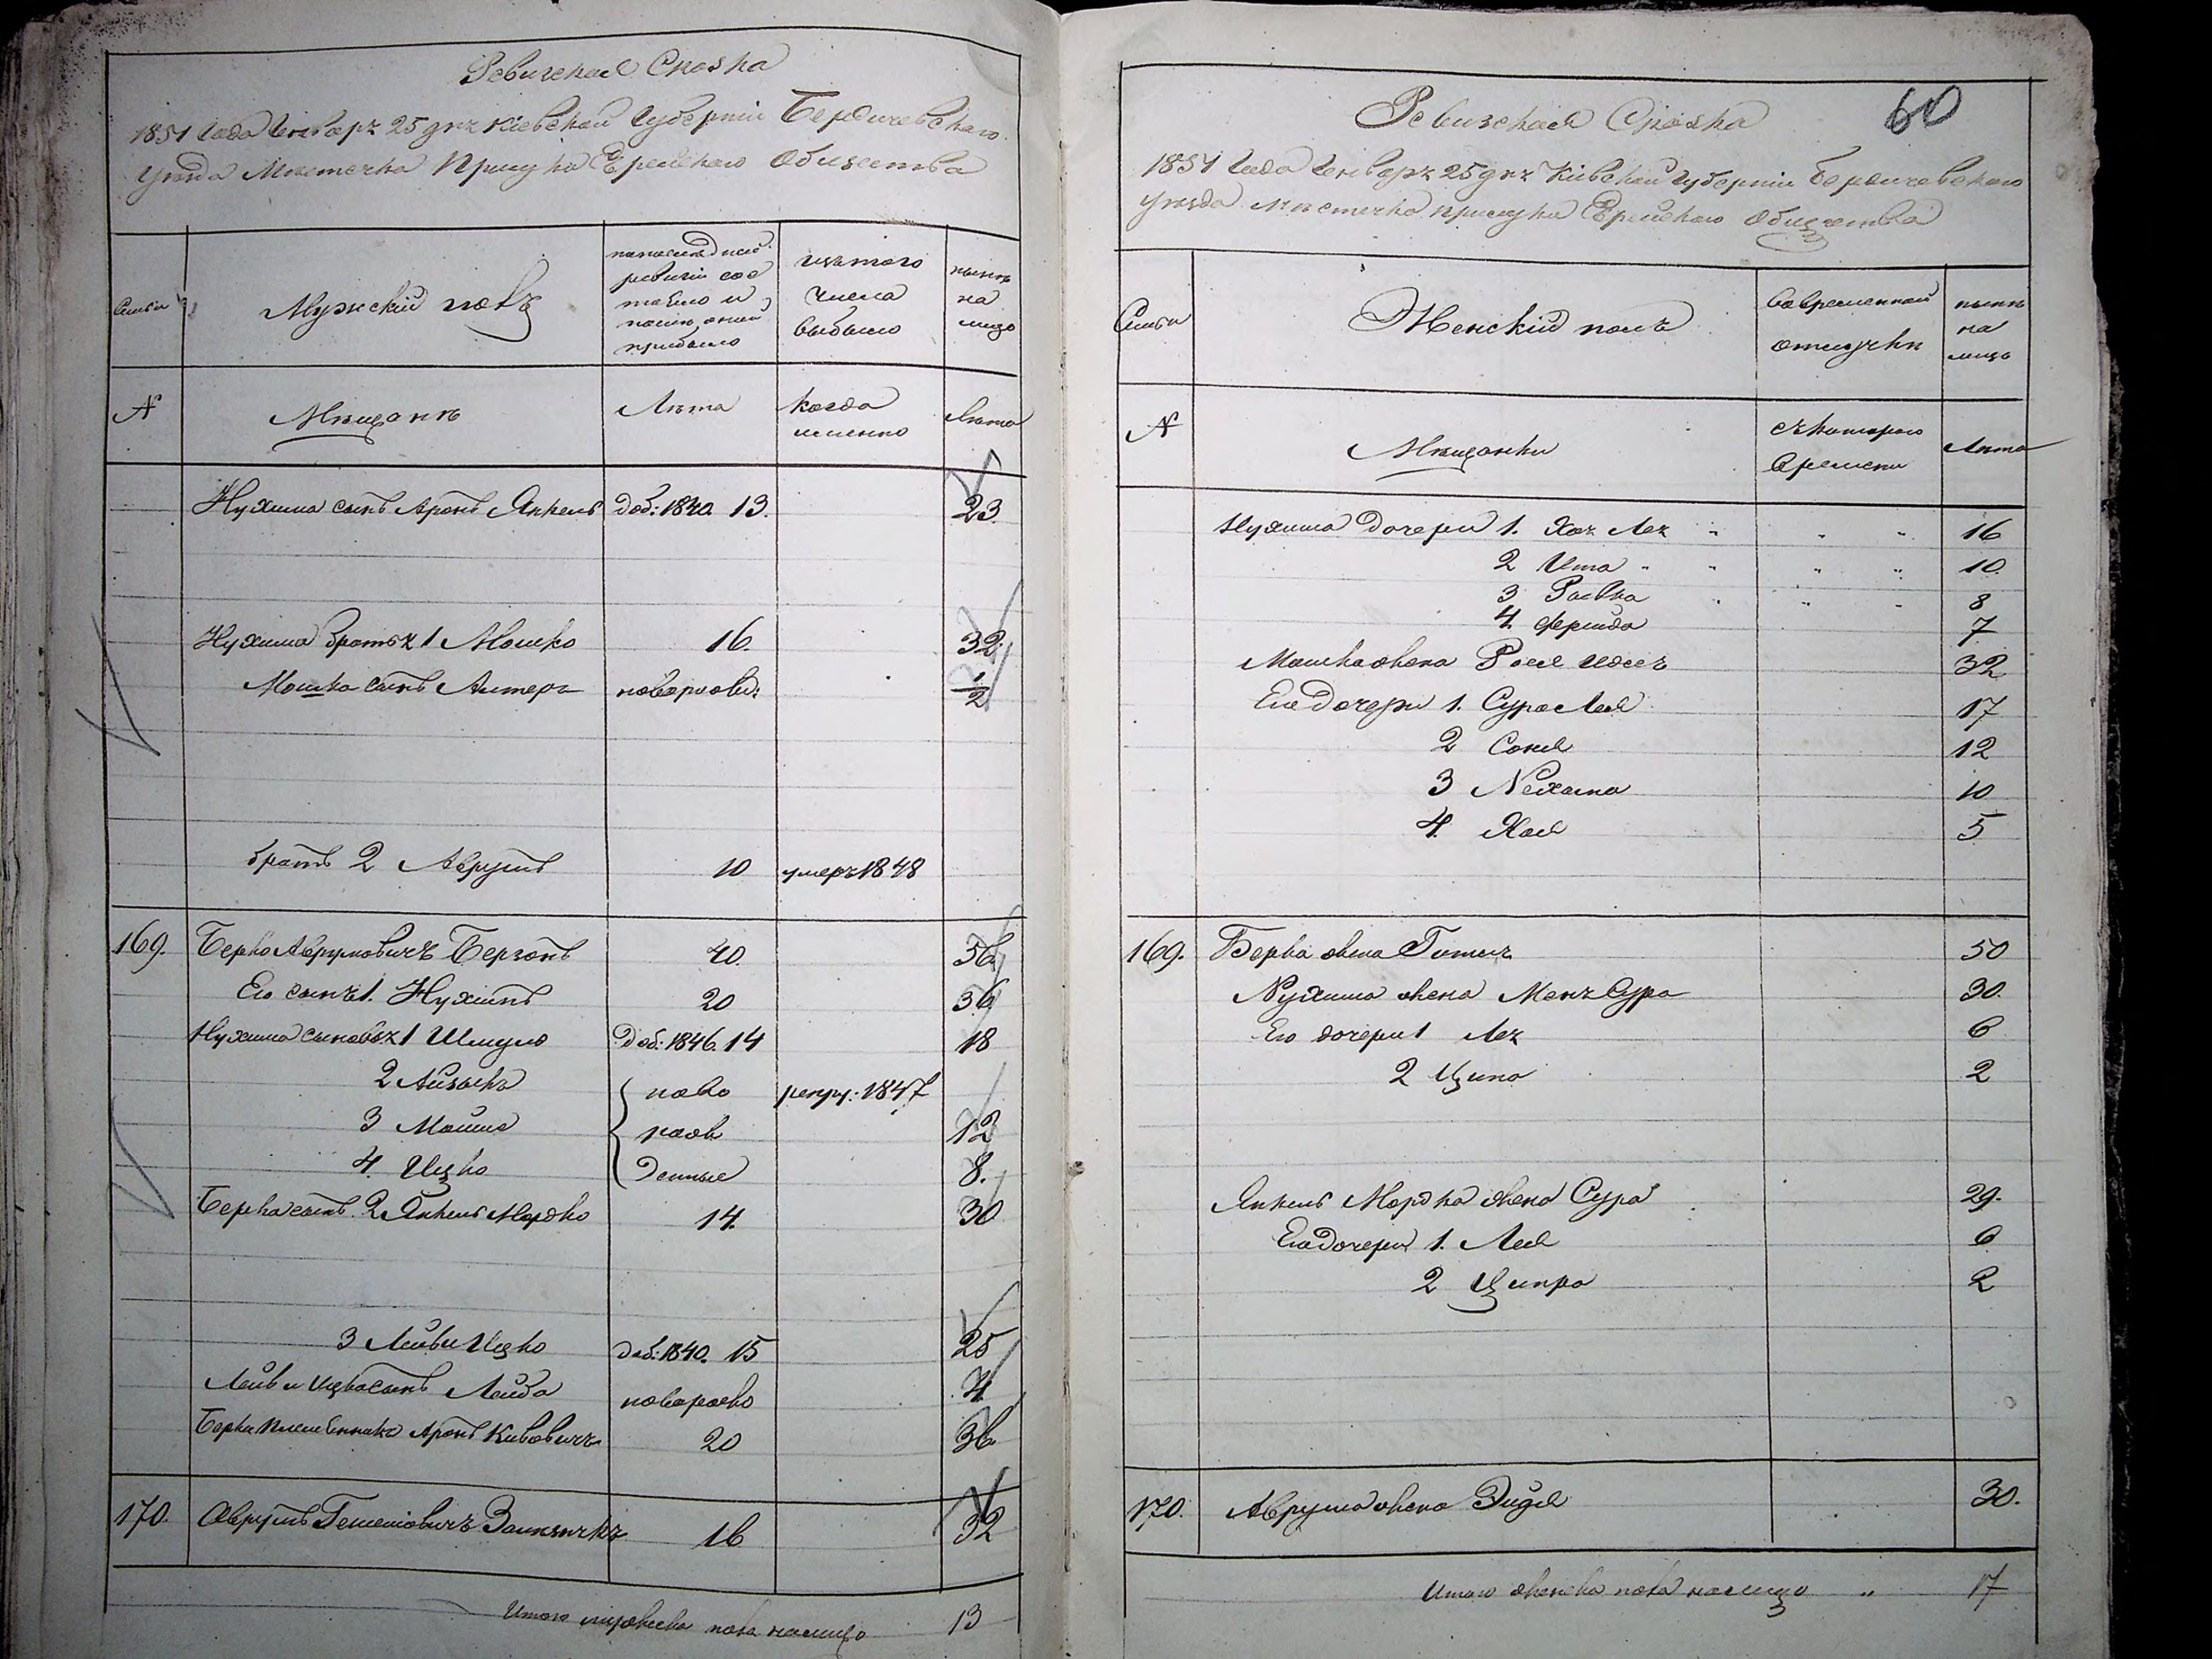 Ревизская Сказка
1851 года Генваря 25 дня Киевской Губернии Бердичевскаго
уезда Местечка Прилука Еврейскаго Общества
Семьи
Мужский полъ
по последней
ревизии сос
тояло и
после оной
прибыло
изъ того
числа
выбыло
ныне
на
лицо
№
Мещане
Лета
когда
именно
Лета
Нухима сынъ Аронъ Янкель доб: 1840. 13. 23.
Нухима братья 1 Мошко 16. 32.
Мошка сынъ Алтеръ новорожд: 1/2
братъ 2 Аврумъ 10 умеръ 1848
169. Берко Аврумовичъ 40. 56
Его сынъ 1. Нухимъ 20 36
Нухима сыновья 1 Шмуль доб: 1846. 14 18
2 Айзыкъ ново рекру: 1847
3 Мошко рож 12
4. Ицко денные 8.
Берка сынъ 2 Янкель Мордко 14. 30
3 Лейви Ицко доб: 1840. 15 25
Лейви Ицка сынъ Лейба новорож 4
Берки племенникъ Аронъ Кивовичъ 20 36
170. Аврумъ 16 32
Итого мужеска пола налицо 13
60
Ревизская Сказка
1851 года Генваря 25 дня Киевской Губернии Бердичевскаго
уезда местечка Прилука Еврейскаго Общества
Семьи
Женский полъ
во временной
отлучке
ныне
на
лицо
№
Мещанки
съ котораго
времени
Лета
Нухима дочери 1. Хая Лея " " " 16
2 Ита " " " " 10.
3 Ривка " " " 8
4. Фрейда 7
Мошка жена Рося 32
Его дочери 1. Сура Лея 17
2 Соня 12
3 Нехама 10
4. Хая 5
169. Берка жена Гитля 50
Нухима жена Меня Сура 30.
Его дочери 1 Лея 6
2 Ципа 2
Янкель Мордка жена Сура 29.
Его дочери 1. Лея 6
2 Ципра 2
170. Аврума жена Эйдя 30.
Итого женска пола налицо " 17